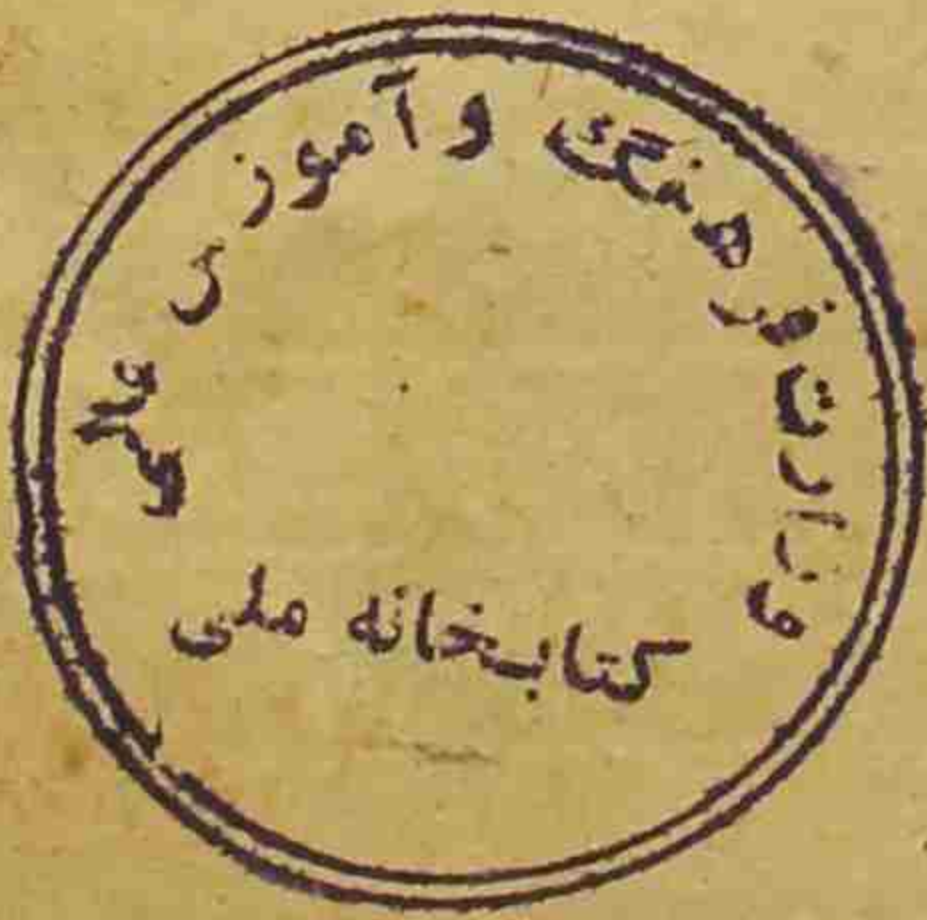 وزارت فرهنگ و آموزش عالی
کتابخانه ملی